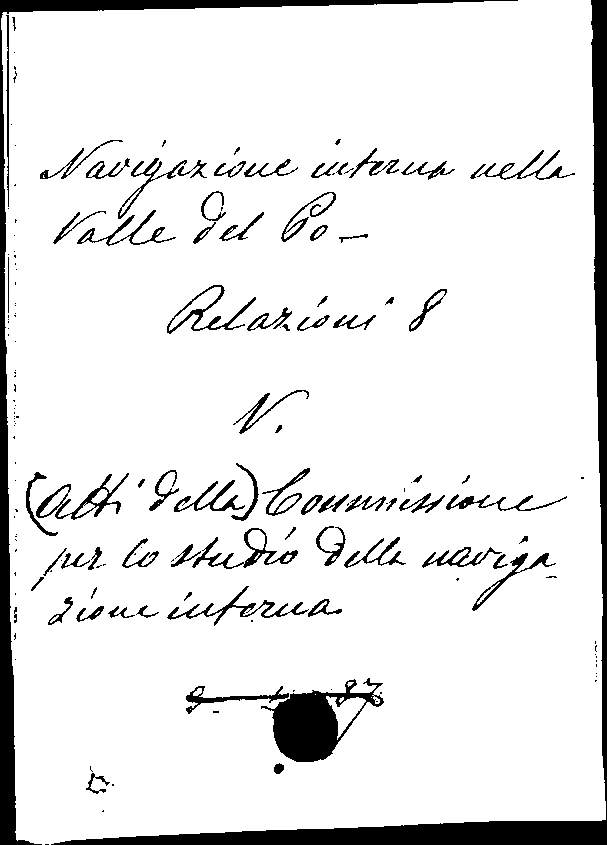 Navigazione interna nella
Valle del Po —
Relazioni 8
V.
(Atti della) Commissione
per lo studio della naviga-
zione interna